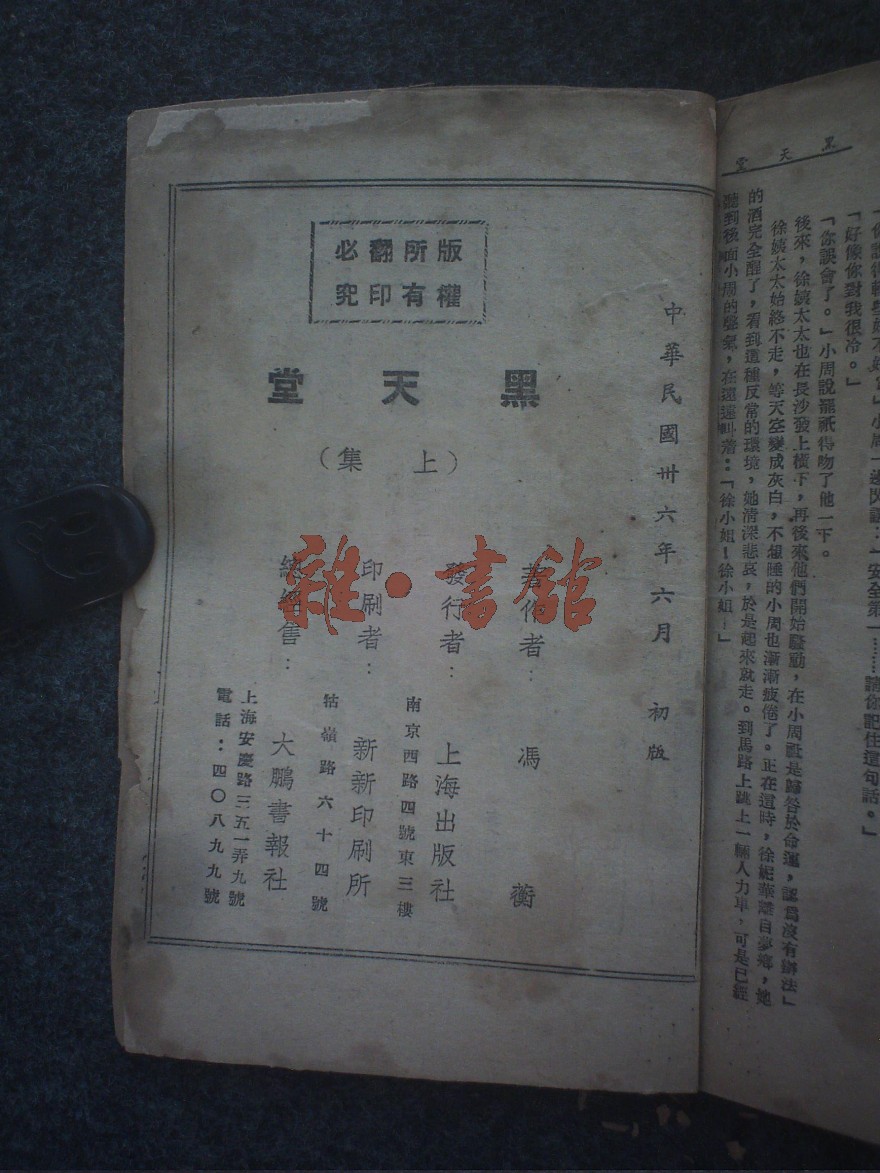 黑天堂
小周一邊閃讓：「安全第一………請你記住這句話。」
「好像你對我很冷。」
「你誤會了。」小周說罷祇得吻了他一下。
後來，徐姨太太也在長沙發上橫下，再後來他們開始騷動，在小周祇是歸咎於命運，認爲沒有辦法」
徐姨太太始終不走，等天空變成灰白，不想睡的小周也漸漸疲倦了。正在這時，徐妮華離自夢鄉，她
的酒完全醒了，看到這種反常的環境，她清深悲哀，於是起來就走。到馬路上跳上一輛人力車，可是已經
聽到後面小周的聲氣，在遠遠叫着：「徐小姐！徐小姐！」
版權所有翻印必究
黑天堂
（上集）
中華民國卅六年六月 初版
著作者：馮衡
發行者：上海出版社
南京西路四號東三樓
印刷者：新新印刷所
牯嶺路六十四號
總經售：大鵬書報社
上海安慶路三五一弄九號
電話：四〇八九九號
雜·書館